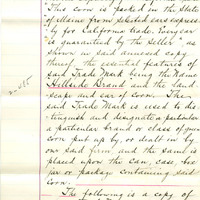 This corn is packed in the State
of Maine from selected ears express-
ly for California trade. Every can
is guaranteed by the seller" as
shown in said annexed copy
thereof. the essential features of
said Trade Mark being the Name
Hillside Brand and the land-
scape and ear of corn. The
2015
said Trade Mark is used to dis-
tinguish and designate a particular
a particular brand or class of gree
corn put up by, or dealt in by
our said firm, and the same is
placed upon the can, case, box
jar or package containing said
corn.
The following is a copy of